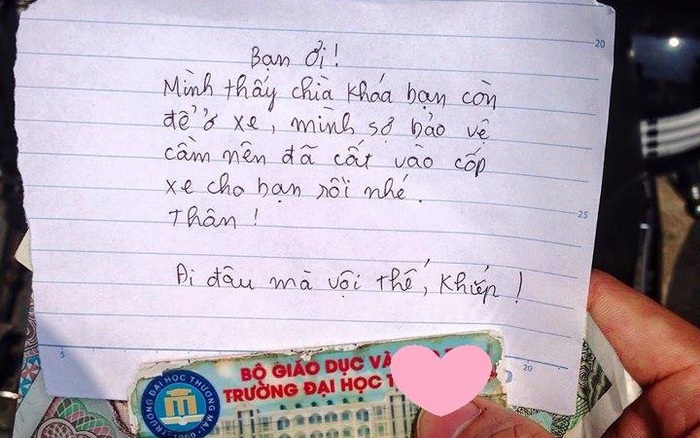 20
Bạn ơi!
Mình thấy chìa khóa bạn còn
để ở xe, mình sợ bảo vệ
cầm nên đã cất vào cốp
xe cho bạn rồi nhé.
Thân!
25
Đi đâu mà vội thế, khiếp!
5
20
BỘ GIÁO DỤC VÀ
TRƯỜNG ĐẠI HỌC T
TRƯỜNG ĐẠI HỌC THƯƠNG MẠI